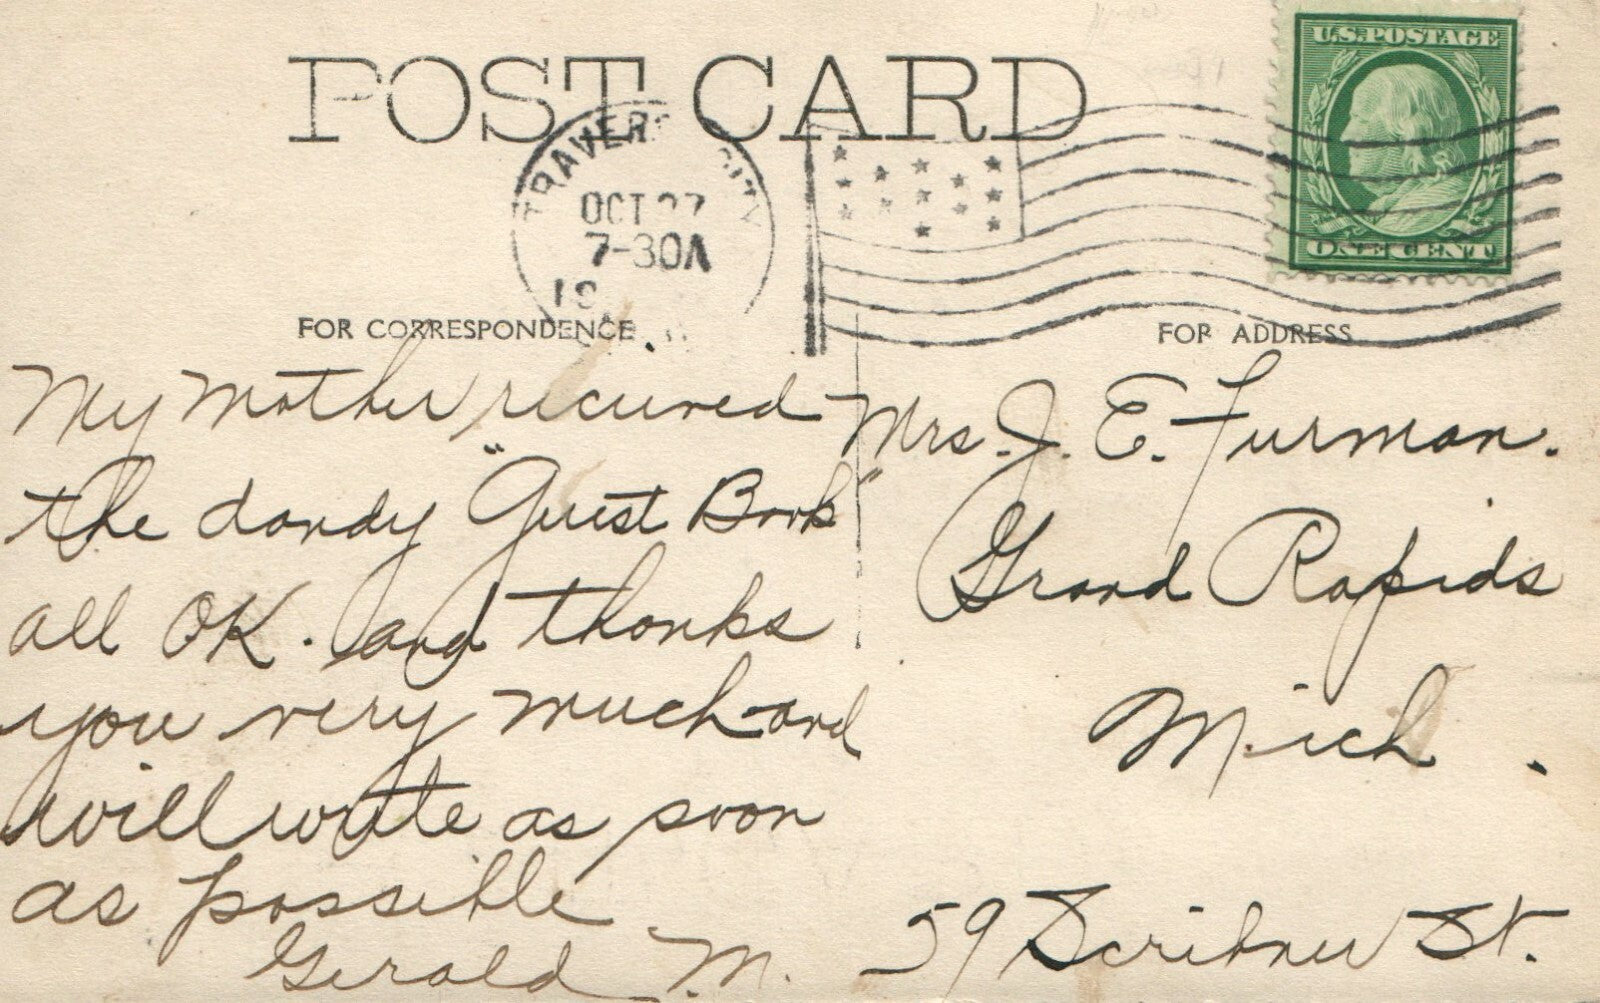 POST CARD
U.S. POSTAGE
ONE CENT
TRAVERS CITY
OCT 27
7-30A
19
FOR CORRESPONDENCE
My mother recieved
the dandy "Guest Book"
all OK. and thanks
you very much and
will write as soon
as possible
Gerald M.
FOR ADDRESS
Mrs. J. E. Furman.
Grand Rapids
Mich.
59 Scribner St.